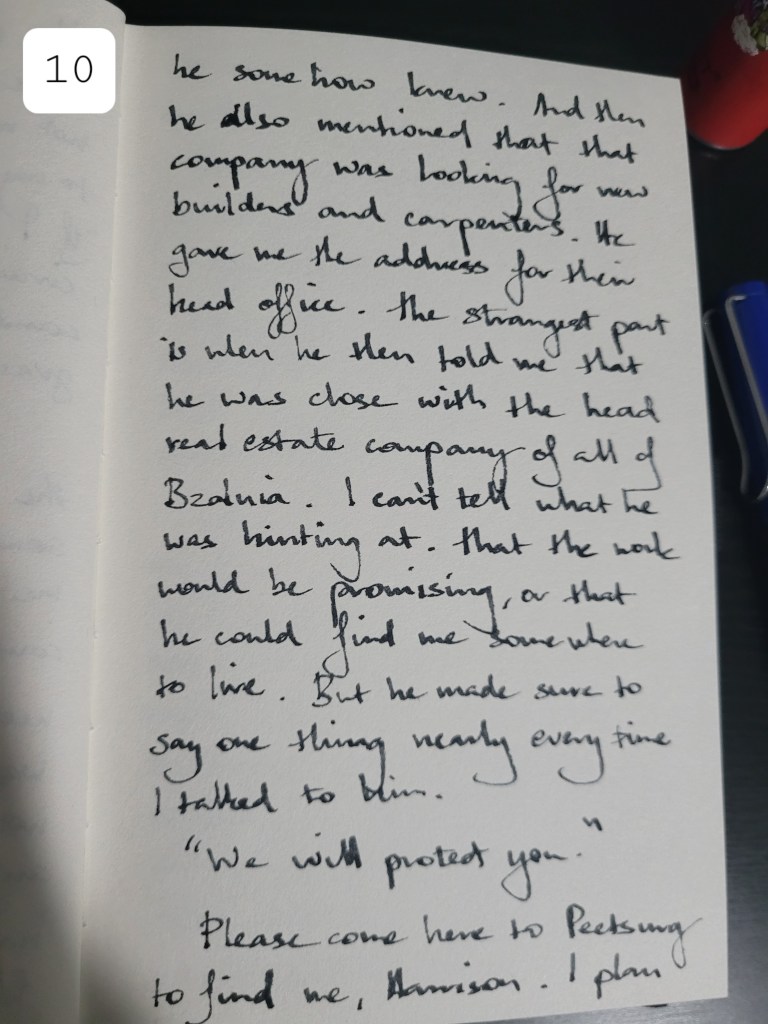 10
he somehow knew. And then
he also mentioned that that
company was looking for new
builders and carpenters. He
gave me the address for their
head office. The strangest part
is when he then told me that
he was close with the head
real estate company of all of
Bzalnia. I can't tell what he
was hinting at. That the work
would be promising, or that
he could find me somewhere
to live. But he made sure to
say one thing nearly every time
I talked to him.
"We will protect you."
Please come here to Peetsung
to find me, Harrison. I plan